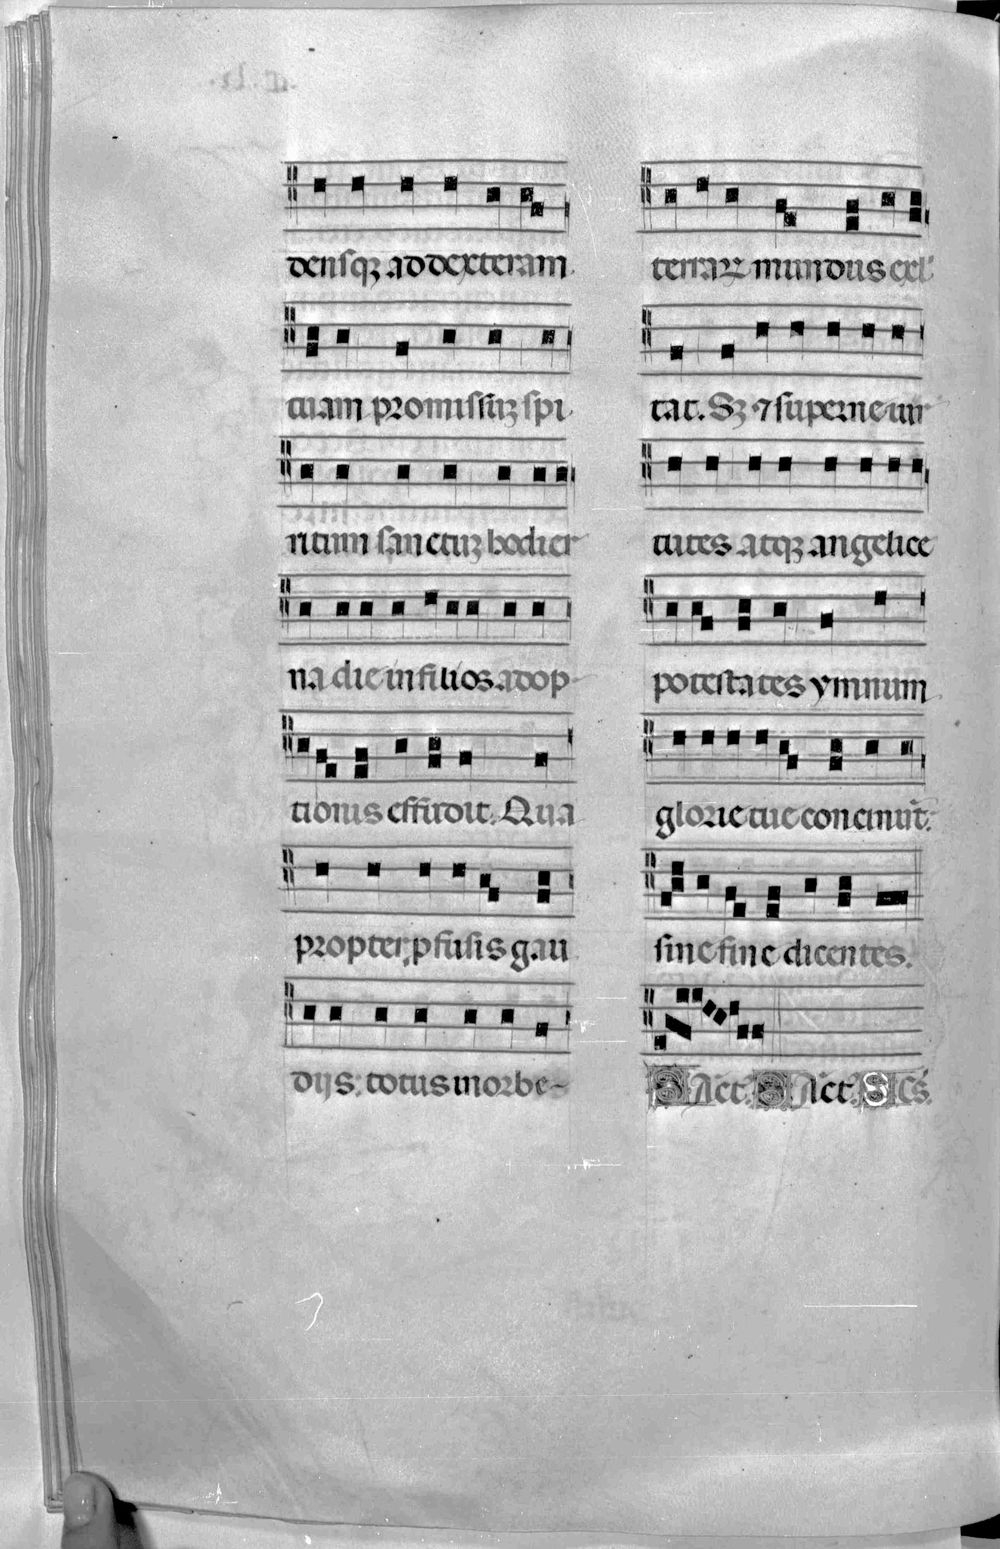 densqꝫ ad dexteram
tuam promissuꝫ spi
ritum sanctuꝫ hodier
na die in filios adop
tionis effudit. Qua
propter ꝓfusis gau
dijs: totus in orbe
terraꝝ mundus exl'
tat. Sꝫ ⁊ superne uir
tutes atqꝫ angelice
potestates ymnum
glorie tue concinūt.
sine fine dicentes.
SAct. SAct. SCs.